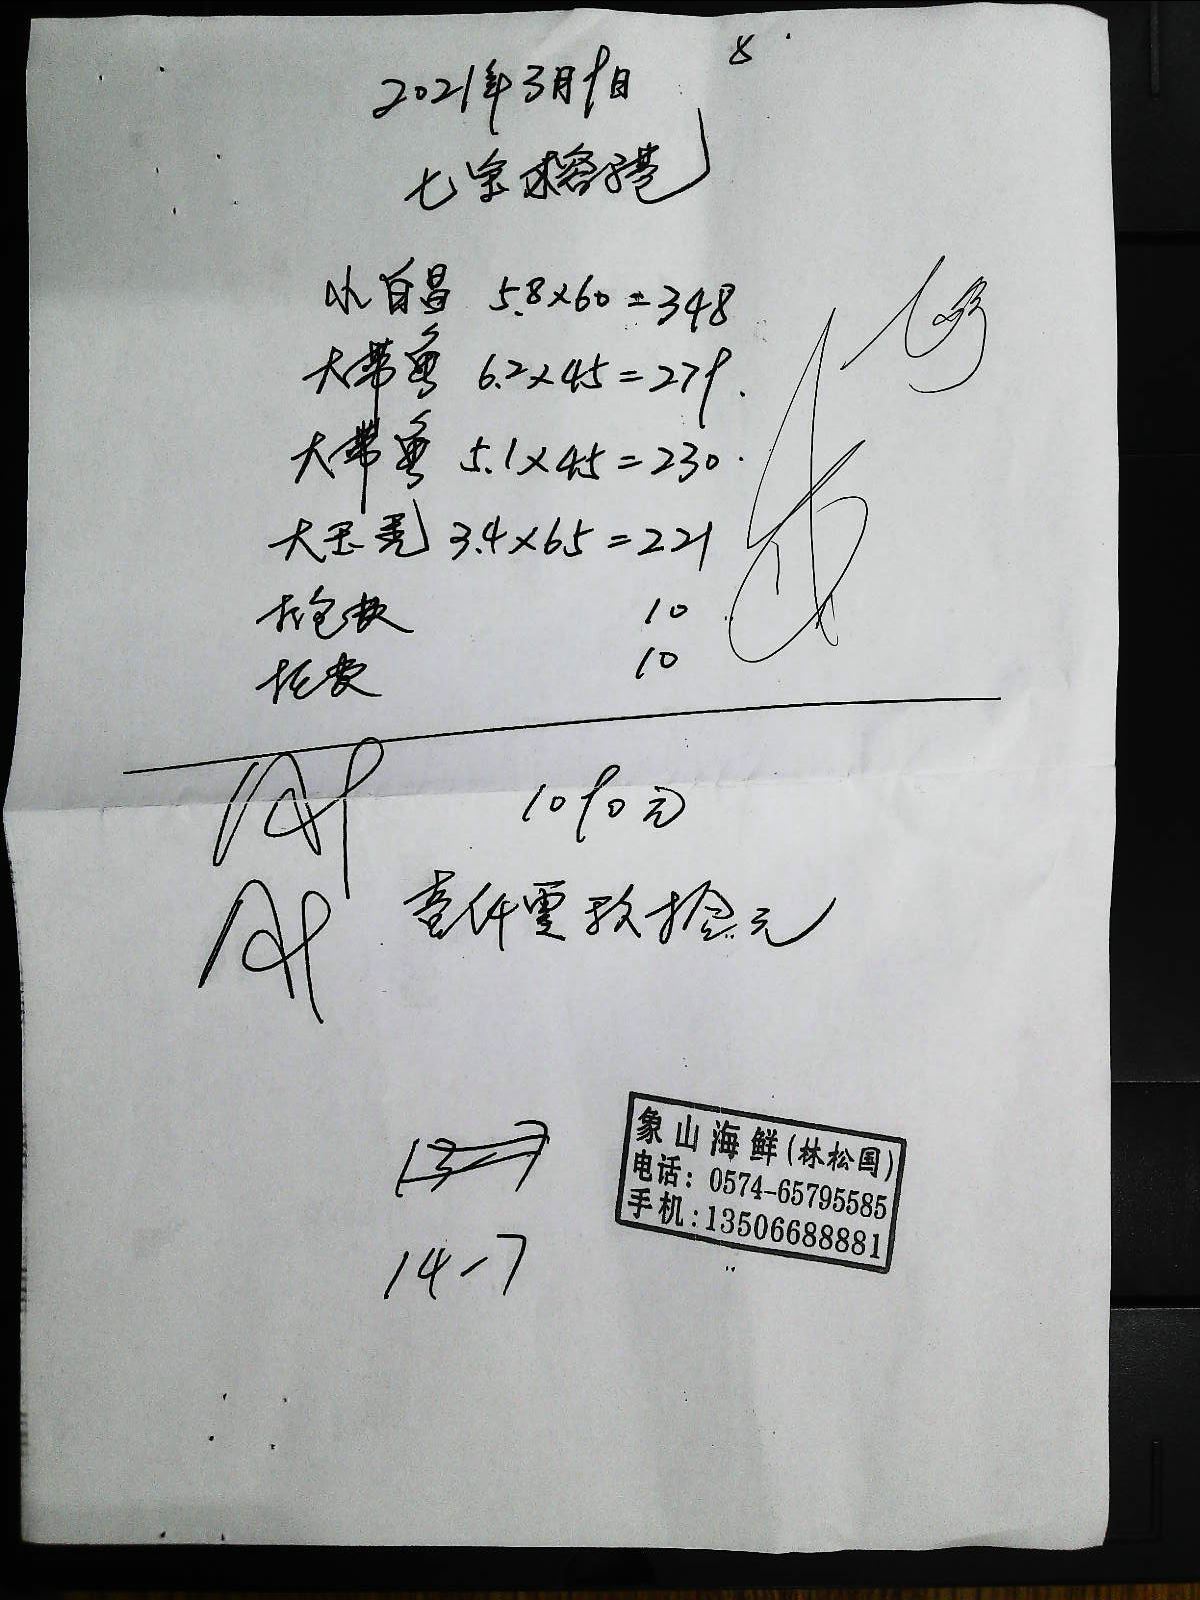 8
2021年3月9日
七字
小白昌 5.8×60=348
大带鱼 6.2×45=279.
大带鱼 5.1×45=230.
大玉秃 3.4×65=221
打包费 10
托费 10
1090元
壹仟零玖拾元
13-7
14-7
象山海鲜(林松国)
电话: 0574-65795585
手机:13506688881